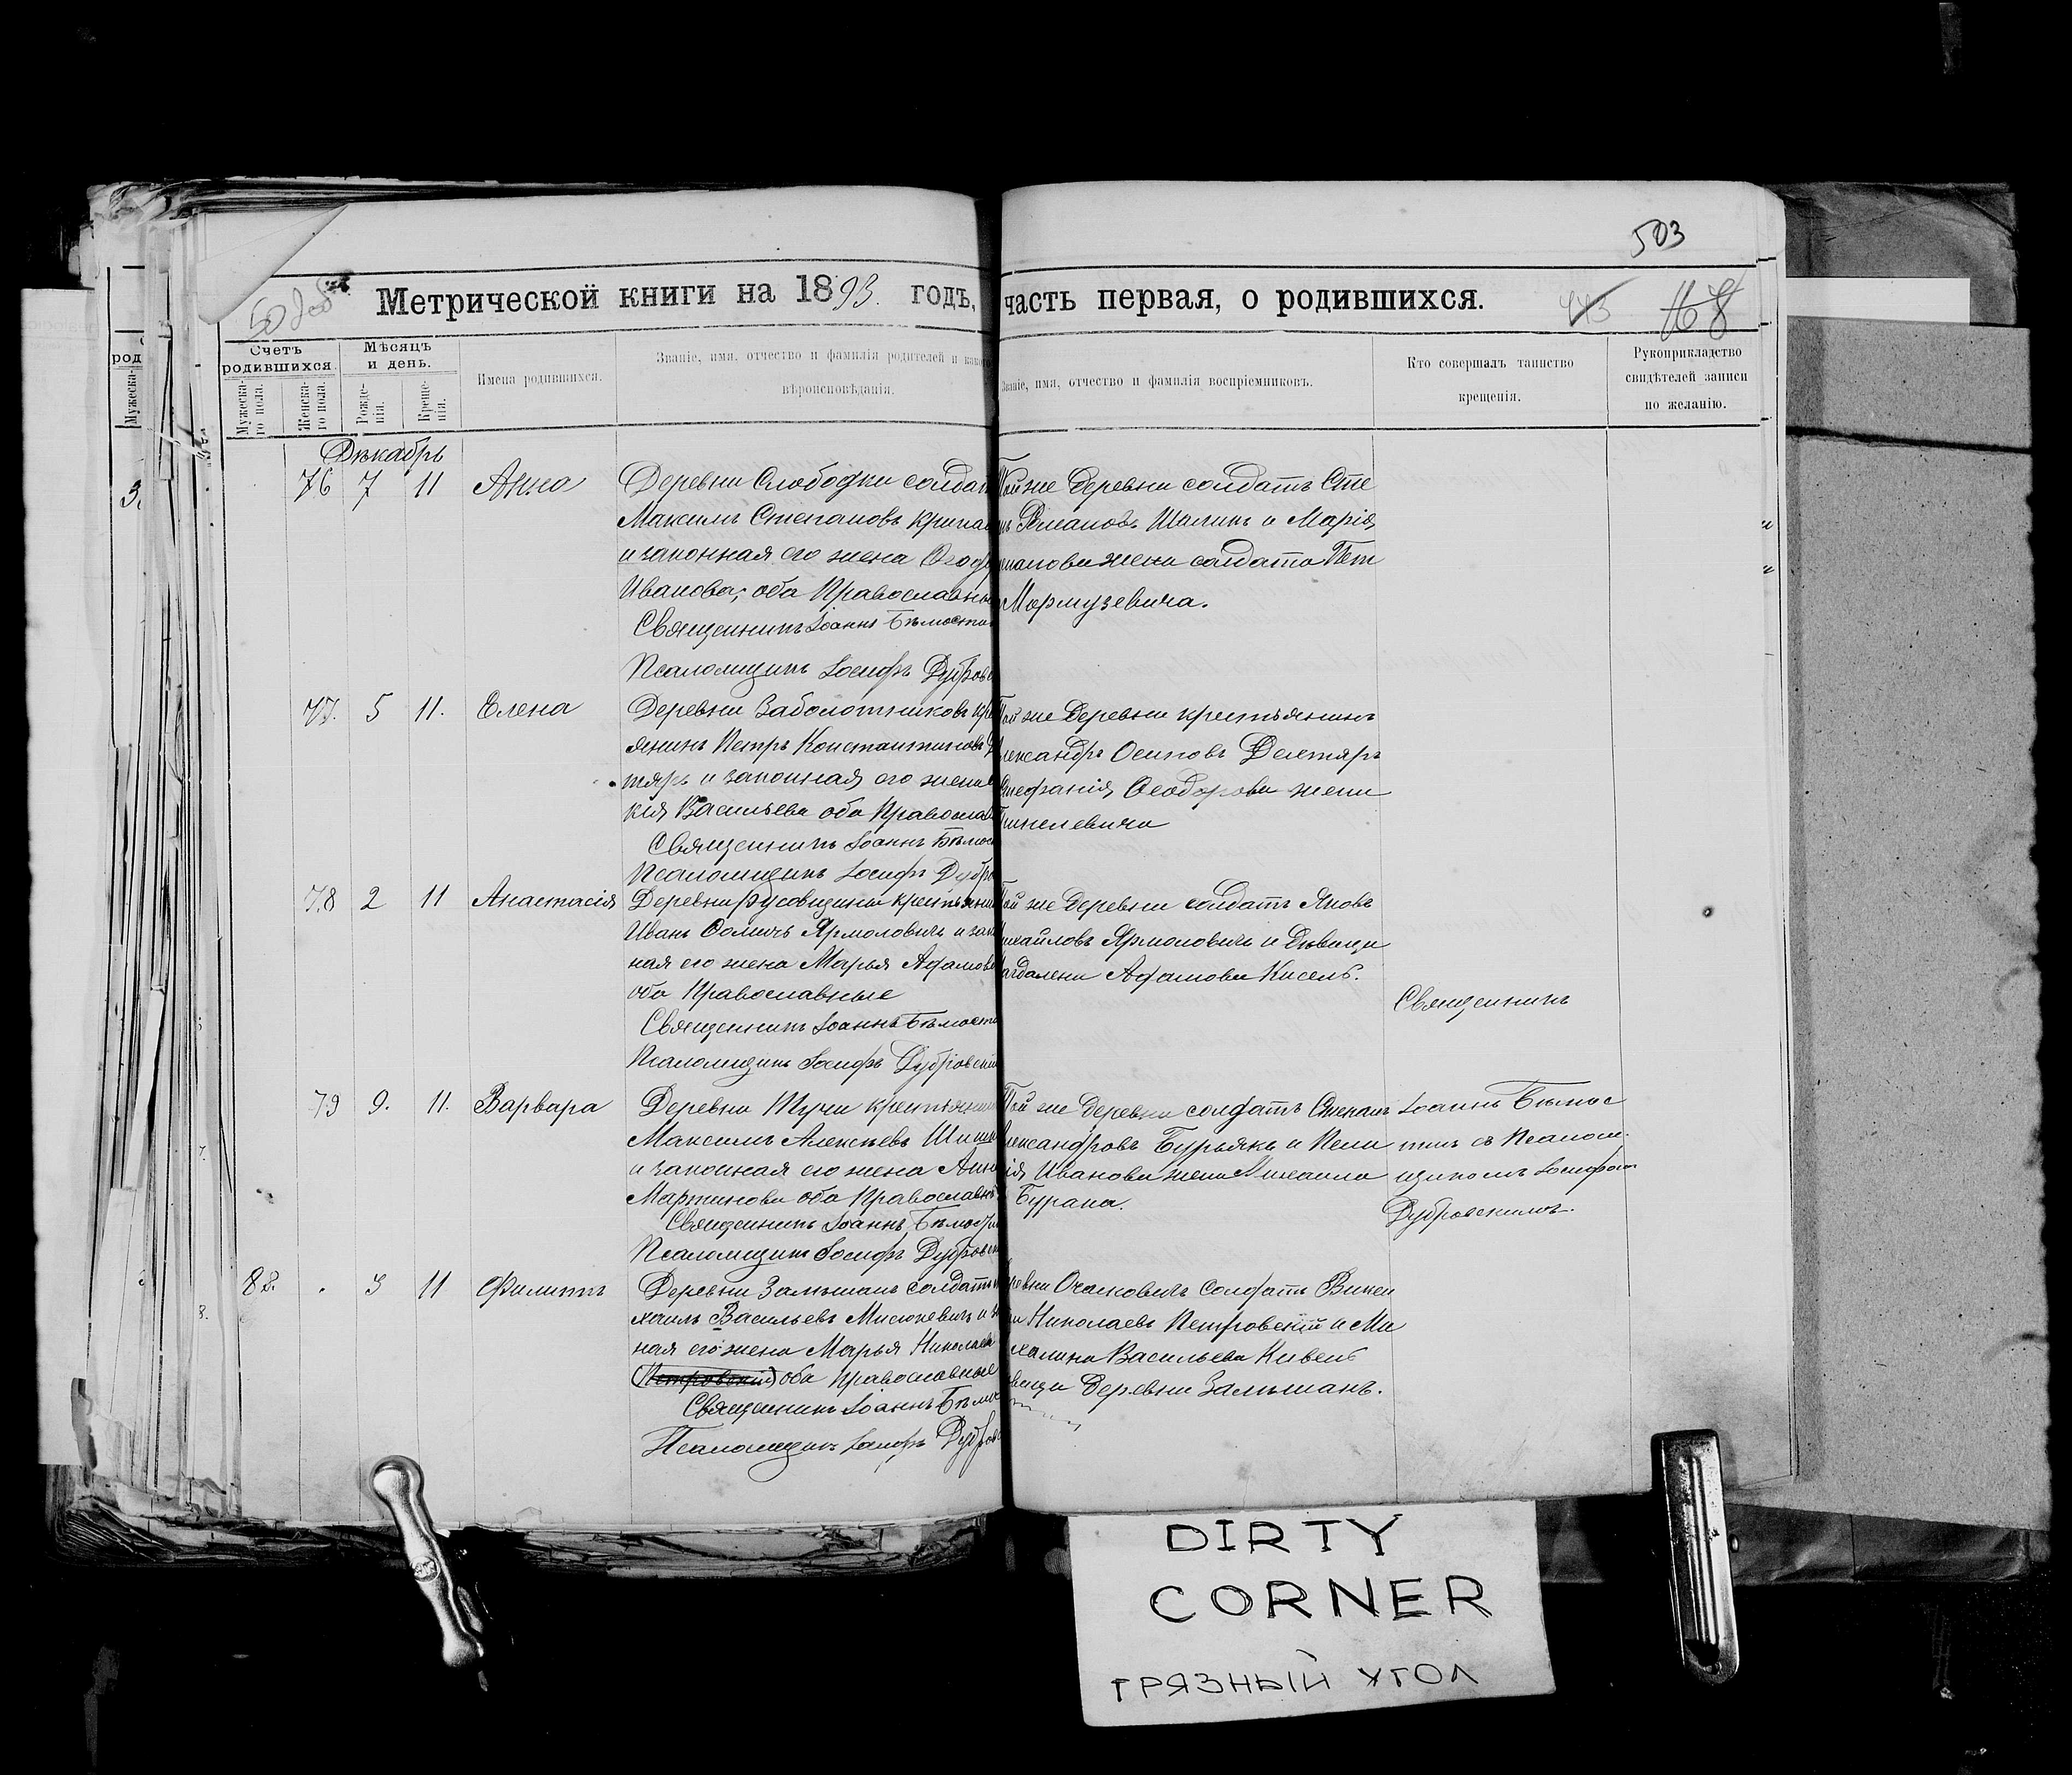 503
Метрической книги на 1893. годъ,
часть первая, о родившихся.
443
168
Счетъ родившихся.
Мужеска-го пола.
Женска-го пола.
Мѣсяцъ и день.
Рожде-нія.
Креще-нія.
Имена родившихся.
Званіе, имя, отчество и фамилія родителей и какого
вѣроисповѣданія.
Званіе, имя, отчество и фамилія воспріемниковъ.
Кто совершалъ таинство
крещенія.
Рукоприкладство
свидѣтелей записи
по желанію.
Декабрь
76 7 11 Анна
Деревни Слободки солдат
Максимъ Степановъ
и законная его жена
Иванова; оба Православны
Священникъ Іоаннъ
Псаломщикъ Іосифъ Дубров
Той же деревни солдатъ Сте
Шалик и Марія
жена солдата Пет
Мормузевича.
77. 5 11. Елена
Деревни Заболотниковъ кре
янинъ Петръ Константиновъ
тярь и законная его жена
кія Васильева оба Православ
Священникъ Іоаннъ
Псаломщикъ Іосифъ Дубро
Той же деревни крестьянинъ
лександръ Осиповъ Дегтярь
Стефанія Ѳеодорова жена
78 2 11 Анастасія
Деревни Русовщины крестьянин
Иванъ Ѳомичъ Ярмоловичъ и зак
ная его жена Марья Адамов
оба Православные
Священникъ Іоаннъ
Псаломщикъ Іосифъ Дубровскій
Той же деревни солдатъ Яковъ
ихайловъ Ярмоловичъ и дѣвица
агдалена Адамова Кисель.
Священникъ
79 9. 11. Варвара
Деревни Тучи крестьянин
Максимъ Алексѣевъ
и законная его жена Анн
Мартинова оба Православн
Священникъ Іоаннъ
Псаломщикъ Іосифъ Дубровск
Той же деревни солдатъ Степанъ
лександровъ Бурьякъ и Пела
ія Иванова жена Михаила
Бурака.
Іоаннъ
съ Псалом
щикомъ Іосифом
Дубровскимъ.
82. 3 11 Филиппъ
Деревни Залѣшанъ солдатъ
хаилъ Васильевъ Мисюкевичъ и
ная его жена Марья Николаева
(Петровскій) оба Православные
Священникъ Іоаннъ
Псаломщикъ Іосифъ Дубров
солдатъ Викен
Николаевъ Петровскій и Ми
халина Васильева
деревни Залѣшанъ.
DIRTY
CORNER
ГРЯЗНЫЙ УГОЛ